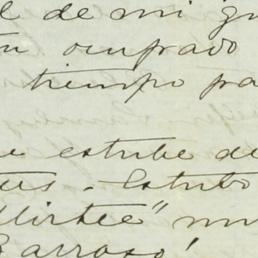 de mi
ocupado
tiempo pa
e estube de
Estubo
Mirtée" mu
Barroso!